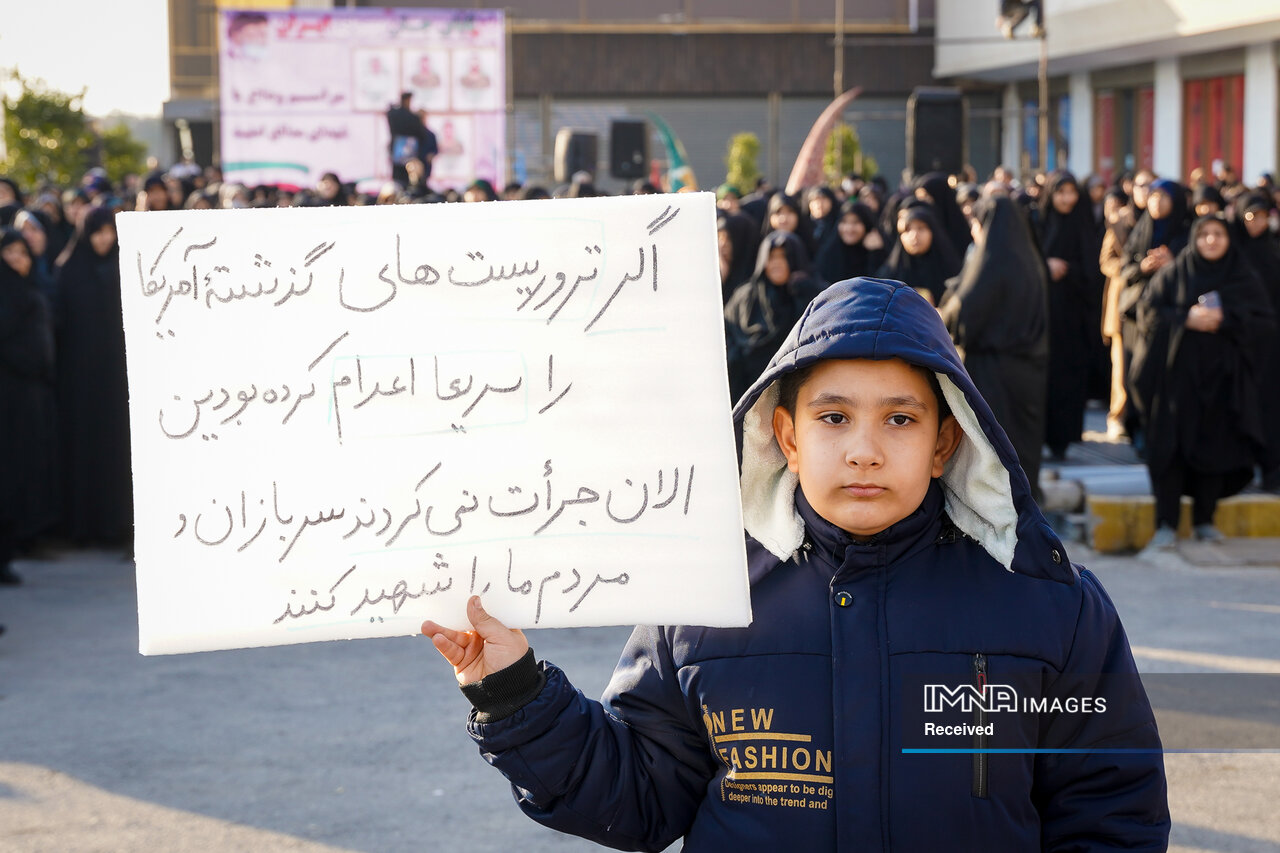 مراسم وداع با
شهدای مدافع امنیت
اگر تروریست های گذشتهٔ آمریکا
را سریعا اعدام کرده بودین
الان جرأت نمی کردند سربازان و
مردم ما را شهید کنند
NEW
FASHION
Designers appear to be dig
deeper into the trend and
IMNA IMAGES
Received